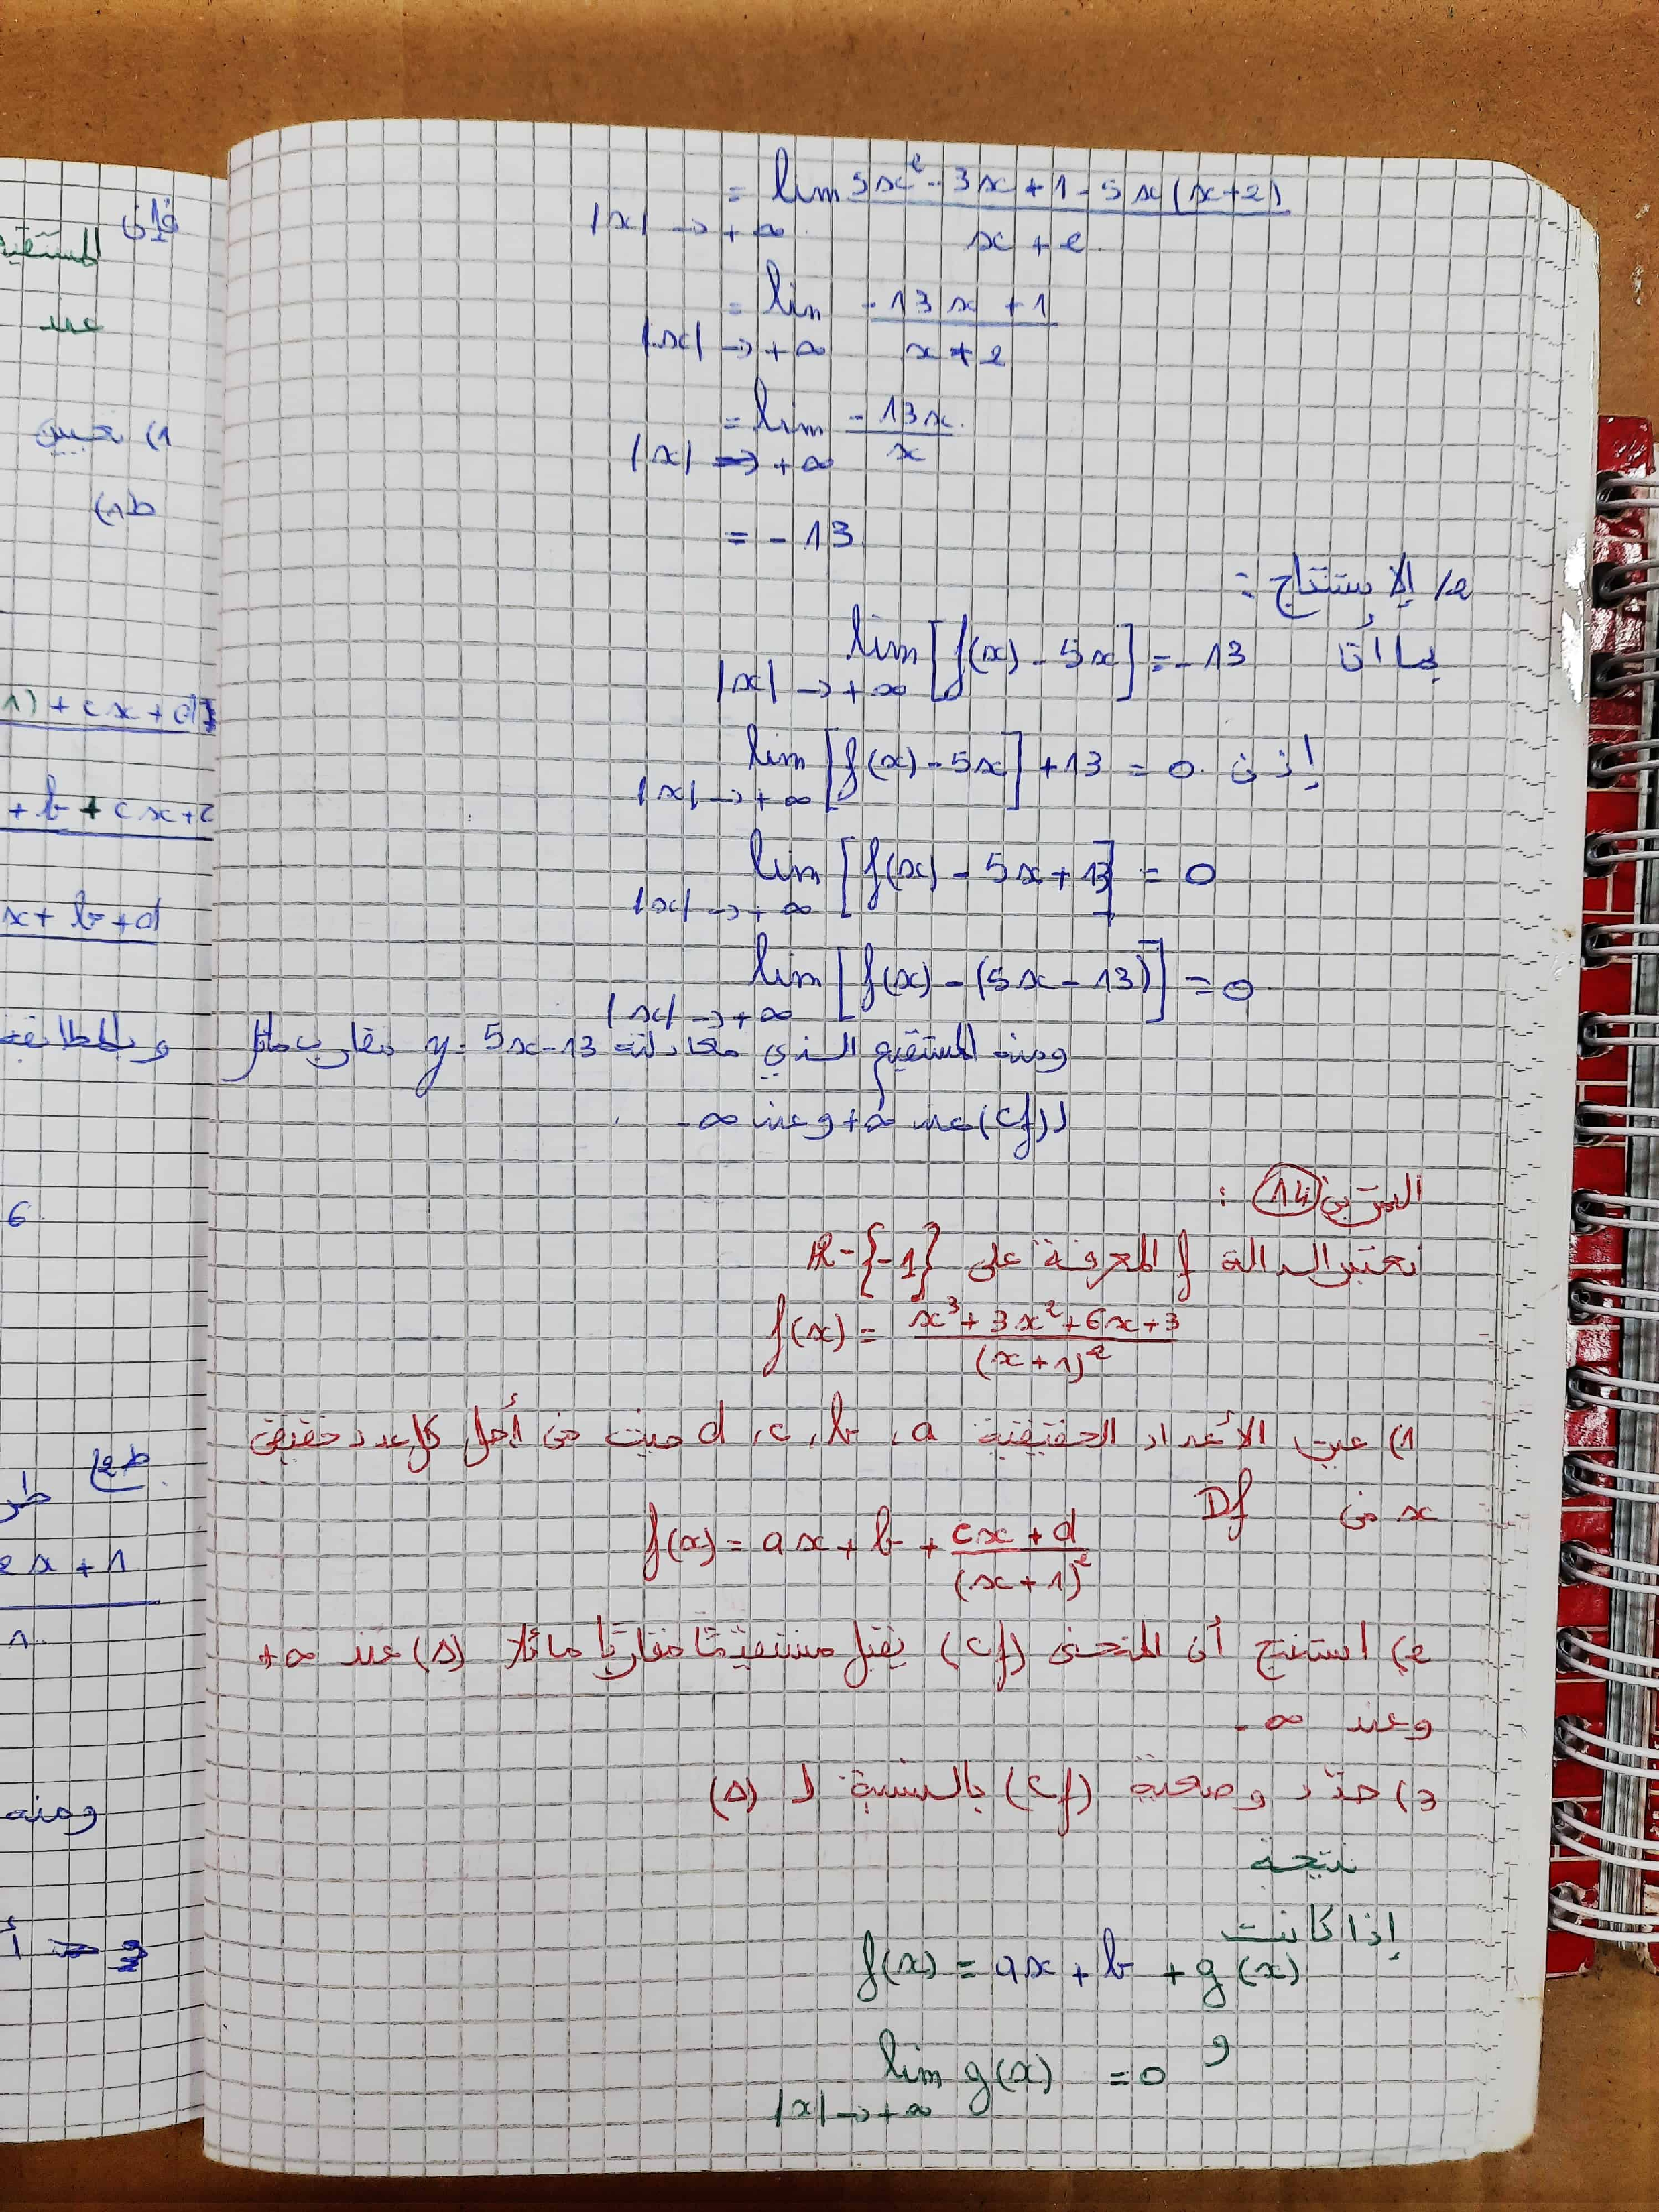 = lim 5x² - 3x + 1 - 5x(x+2) / x + 2
|x| → +∞
= lim -13x + 1 / x + 2
|x| → +∞
= lim -13x / x
|x| → +∞
= -13
2/ الإستنتاج :
بما أن lim [f(x) - 5x] = -13
|x| → +∞
إذن lim [f(x) - 5x] + 13 = 0
|x| → +∞
lim [f(x) - 5x + 13] = 0
|x| → +∞
lim [f(x) - (5x - 13)] = 0
|x| → +∞
ومنه المستقيم الذي معادلته y = 5x - 13 مقارب مائل
لـ (Cf) عند +∞ وعند -∞
التمرين 14 :
نعتبر الدالة f المعرفة على R - {-1}
f(x) = x³ + 3x² + 6x + 3 / (x+1)²
1) عين الأعداد الحقيقية a ، b ، c ، d حيث من أجل كل عدد حقيقي
x من Df
f(x) = ax + b + cx + d / (x+1)²
2) استنتج أن المنحنى (Cf) يقبل مستقيمًا مقاربًا مائلا (Δ) عند +∞
وعند -∞
3) حدّد وضعية (Cf) بالنسبة لـ (Δ)
نتيجة
إذا كانت
f(x) = ax + b + g(x)
و
lim g(x) = 0
|x| → +∞
فإن
المستقيم
عند
1) تعيين
ط1)
1) + cx + d
+ b + cx +
x + b + d
وبالمطابقة
6
ط2)
2x + 1
ومنه